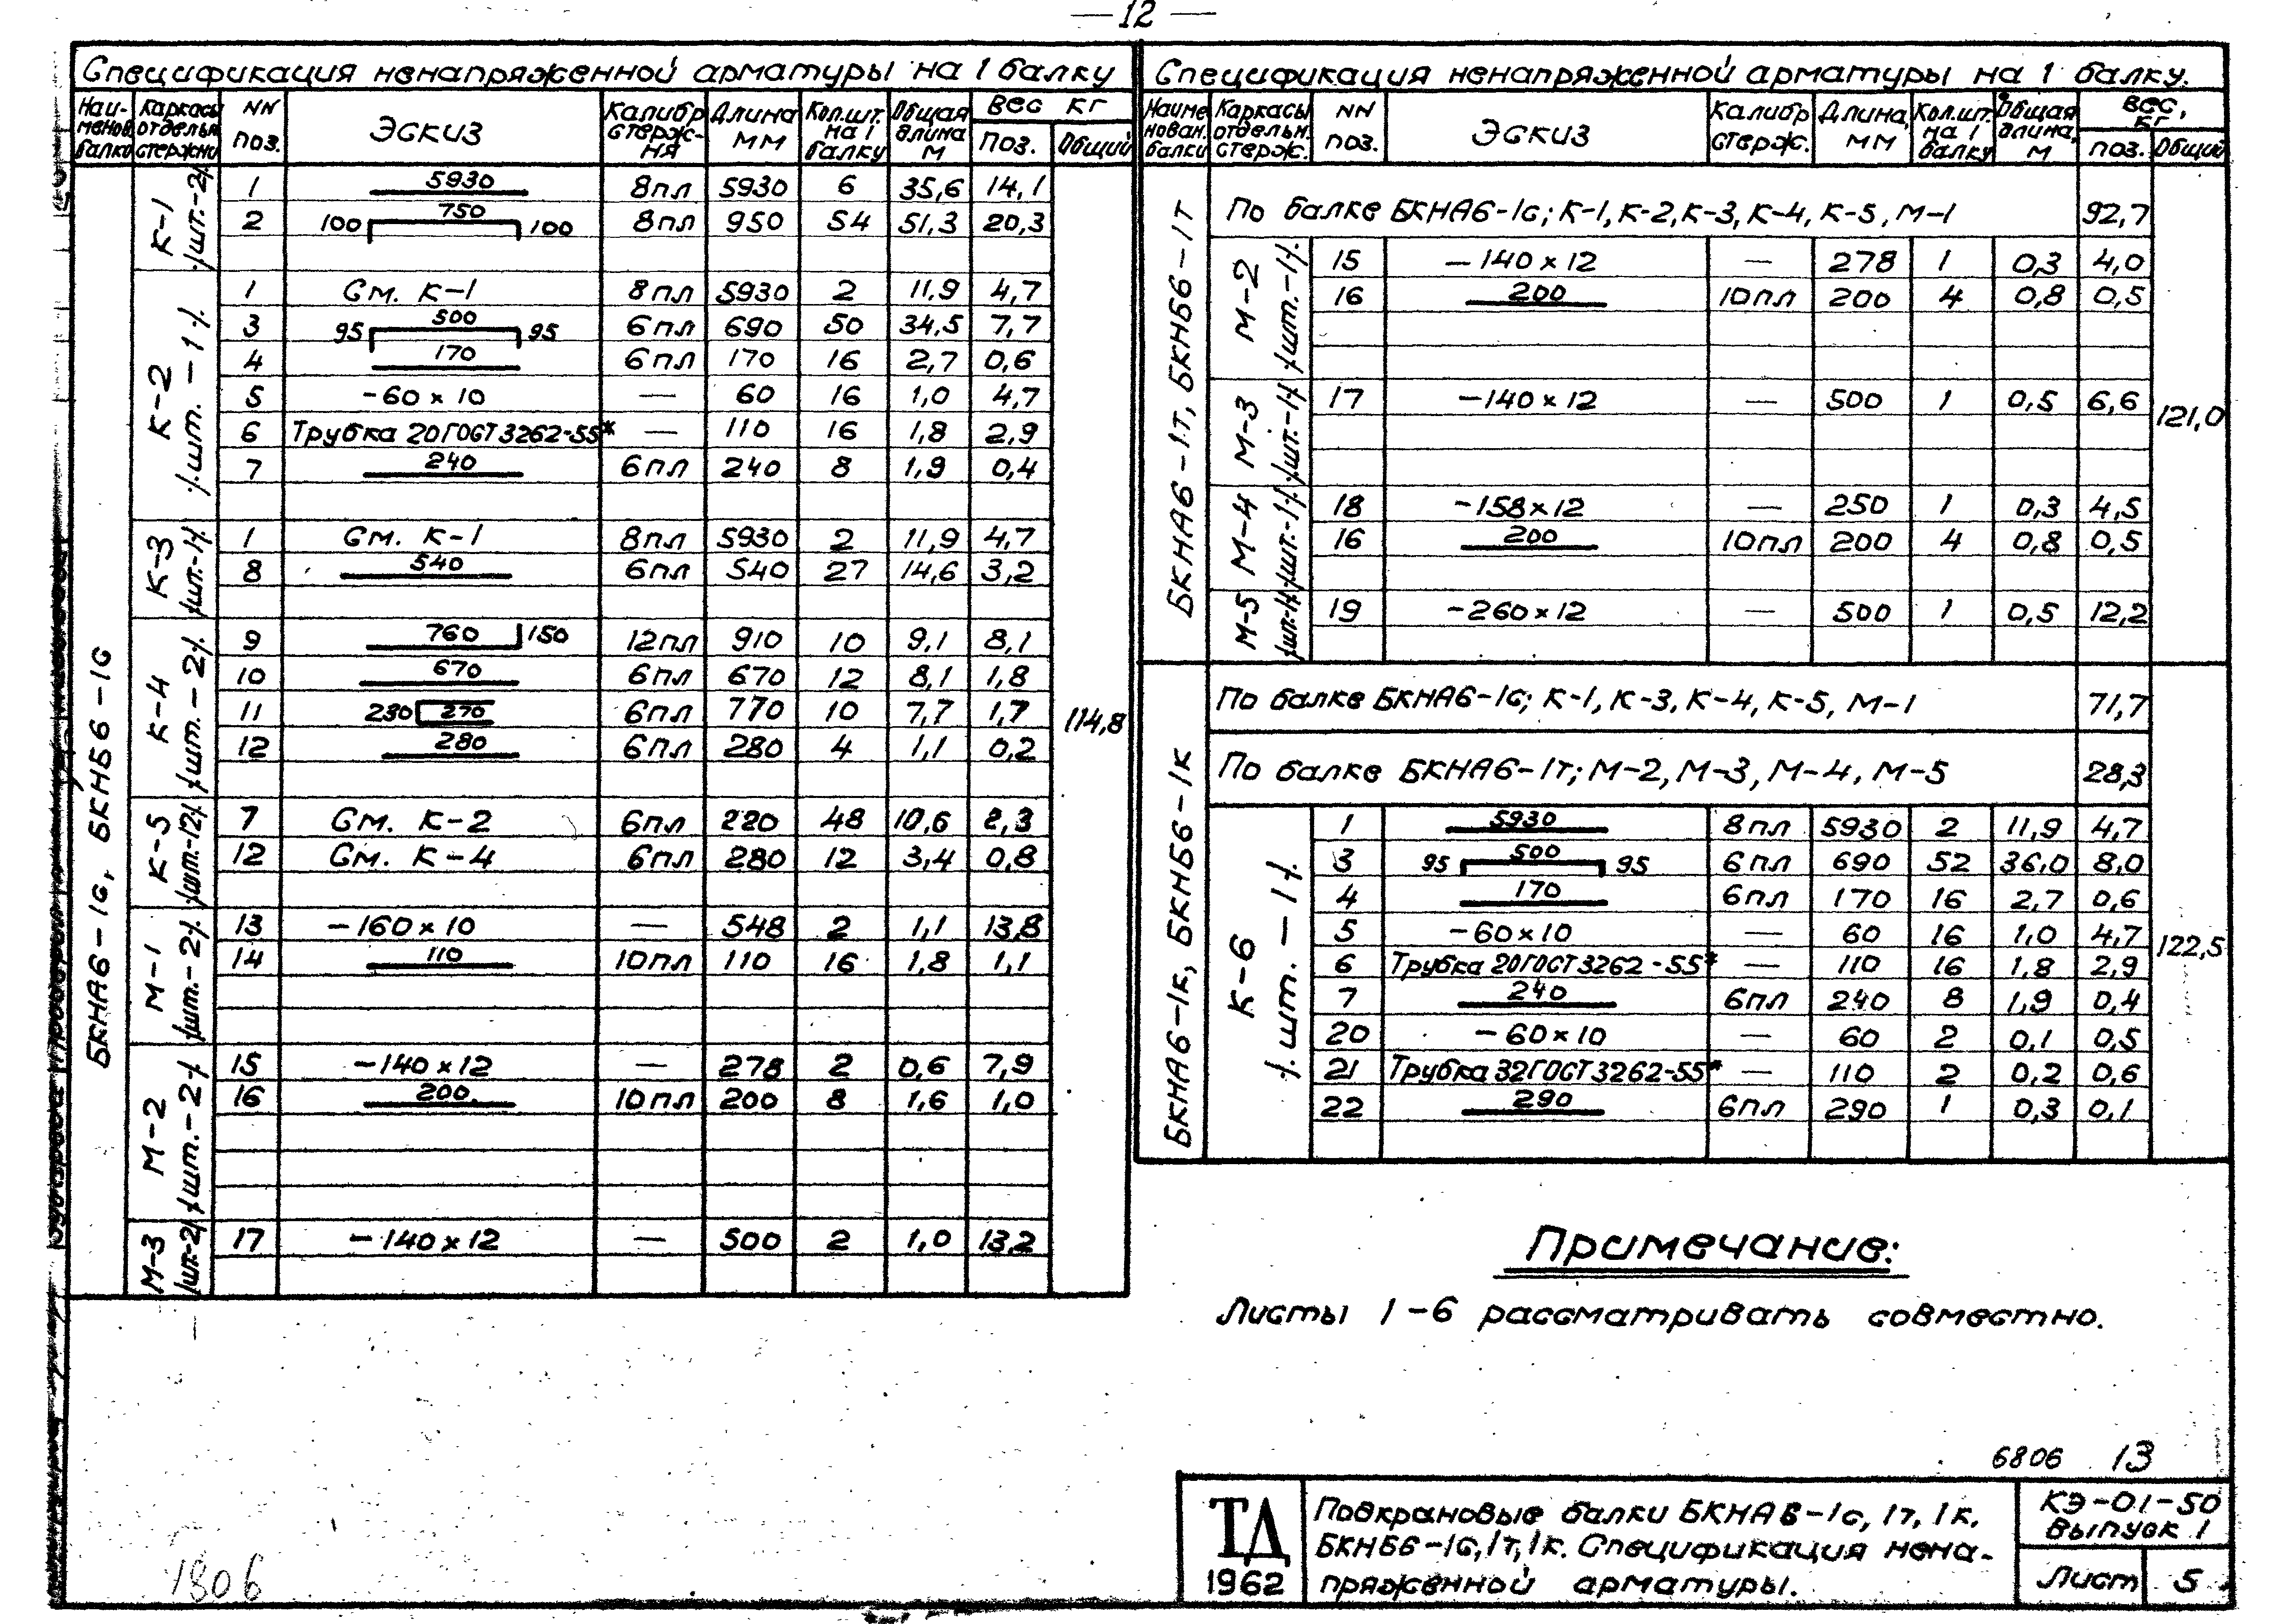 — 12 —
Спецификация ненапряженной арматуры на 1 балку
Наименов. балки | Каркасы отдельн. стержни | NN поз. | Эскиз | Калибр стержня | Длина мм | Кол.шт. на 1 балку | Общая длина м | Вес кг поз. | Общий
БКНА6-1С, БКНБ6-1С
К-1 /шт.-2/
1 | 5930 | 8пл | 5930 | 6 | 35,6 | 14,1
2 | 100 750 100 | 8пл | 950 | 54 | 51,3 | 20,3
К-2 /шт.-1/
1 | См. К-1 | 8пл | 5930 | 2 | 11,9 | 4,7
3 | 95 500 95 | 6пл | 690 | 50 | 34,5 | 7,7
4 | 170 | 6пл | 170 | 16 | 2,7 | 0,6
5 | -60×10 | — | 60 | 16 | 1,0 | 4,7
6 | Трубка 20ГОСТ3262-55* | — | 110 | 16 | 1,8 | 2,9
7 | 240 | 6пл | 240 | 8 | 1,9 | 0,4
К-3 /шт.-1/
1 | См. К-1 | 8пл | 5930 | 2 | 11,9 | 4,7
8 | 540 | 6пл | 540 | 27 | 14,6 | 3,2
К-4 /шт.-2/
9 | 760 150 | 12пл | 910 | 10 | 9,1 | 8,1
10 | 670 | 6пл | 670 | 12 | 8,1 | 1,8
11 | 230 270 | 6пл | 770 | 10 | 7,7 | 1,7
12 | 280 | 6пл | 280 | 4 | 1,1 | 0,2
114,8
К-5 /шт.-12/
7 | См. К-2 | 6пл | 220 | 48 | 10,6 | 2,3
12 | См. К-4 | 6пл | 280 | 12 | 3,4 | 0,8
М-1 /шт.-2/
13 | -160×10 | — | 548 | 2 | 1,1 | 13,8
14 | 110 | 10пл | 110 | 16 | 1,8 | 1,1
М-2 /шт.-2/
15 | -140×12 | — | 278 | 2 | 0,6 | 7,9
16 | 200 | 10пл | 200 | 8 | 1,6 | 1,0
М-3 /шт.-2/
17 | -140×12 | — | 500 | 2 | 1,0 | 13,2
Спецификация ненапряженной арматуры на 1 балку.
Наименован. балки | Каркасы отдельн. стерж. | NN поз. | Эскиз | Калибр стерж. | Длина, мм | Кол.шт. на 1 балку | Общая длина, м | Вес, кг поз. | Общий
БКНА6-1т, БКНБ6-1т
По балке БКНА6-1с; К-1, К-2, К-3, К-4, К-5, М-1 | 92,7
М-2 /шт.-1/
15 | -140×12 | — | 278 | 1 | 0,3 | 4,0
16 | 200 | 10пл | 200 | 4 | 0,8 | 0,5
М-3 /шт.-1/
17 | -140×12 | — | 500 | 1 | 0,5 | 6,6
121,0
М-4 /шт.-1/
18 | -158×12 | — | 250 | 1 | 0,3 | 4,5
16 | 200 | 10пл | 200 | 4 | 0,8 | 0,5
М-5 /шт.-1/
19 | -260×12 | — | 500 | 1 | 0,5 | 12,2
БКНА6-1к, БКНБ6-1к
По балке БКНА6-1с; К-1, К-3, К-4, К-5, М-1 | 71,7
По балке БКНА6-1т; М-2, М-3, М-4, М-5 | 28,3
К-6 /шт.-1/
1 | 5930 | 8пл | 5930 | 2 | 11,9 | 4,7
3 | 95 500 95 | 6пл | 690 | 52 | 36,0 | 8,0
4 | 170 | 6пл | 170 | 16 | 2,7 | 0,6
5 | -60×10 | — | 60 | 16 | 1,0 | 4,7
122,5
6 | Трубка 20ГОСТ3262-55* | — | 110 | 16 | 1,8 | 2,9
7 | 240 | 6пл | 240 | 8 | 1,9 | 0,4
20 | -60×10 | — | 60 | 2 | 0,1 | 0,5
21 | Трубка 32ГОСТ3262-55* | — | 110 | 2 | 0,2 | 0,6
22 | 290 | 6пл | 290 | 1 | 0,3 | 0,1
Примечание:
Листы 1-6 рассматривать совместно.
6806 13
ТД
1962
Подкрановые балки БКНА6-1с, 1т, 1к.
БКНБ6-1с, 1т, 1к. Спецификация нена-
пряженной арматуры.
КЭ-01-50
Выпуск 1
Лист 5
1806